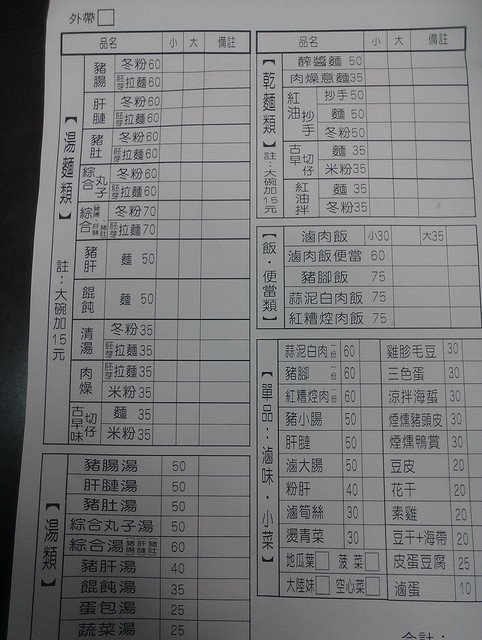 外帶
品名 小 大 備註
【湯麵類】 註：大碗加15元
豬腸 冬粉60
胚芽拉麵60
肝腱 冬粉60
胚芽拉麵60
豬肚 冬粉60
胚芽拉麵60
綜合丸子 冬粉60
胚芽拉麵60
綜合 豬腸．肝腱．豬肚 冬粉70
胚芽拉麵70
豬肝 麵 50
餛飩 麵 50
清湯 冬粉35
胚芽拉麵35
肉燥 胚芽拉麵35
米粉35
古早味切仔 麵 35
米粉35
【湯類】
豬腸湯 50
肝腱湯 50
豬肚湯 50
綜合丸子湯 50
綜合湯 豬腸 肝腱 豬肚 60
豬肝湯 40
餛飩湯 35
蛋包湯 25
蔬菜湯 25
品名 小 大 備註
【乾麵類】 註：大碗加15元
醡醬麵 50
肉燥意麵35
紅油抄手 抄手50
麵 50
冬粉50
古早切仔 麵 35
米粉35
紅油拌 麵 35
冬粉35
【飯．便當類】
滷肉飯 小30 大35
滷肉飯便當 60
豬腳飯 75
蒜泥白肉飯 75
紅糟焢肉飯 75
【單品：滷味．小菜】
蒜泥白肉一份 60 雞胗毛豆 30
豬腳一份 60 三色蛋 30
紅糟焢肉一份 60 涼拌海蜇 30
豬小腸 50 煙燻豬頭皮 30
肝腱 50 煙燻鴨賞 30
滷大腸 50 豆皮 20
粉肝 40 花干 20
滷筍絲 30 素雞 20
燙青菜 30 豆干+海帶 20
地瓜葉 菠菜 皮蛋豆腐 25
大陸妹 空心菜 滷蛋 10
合計：